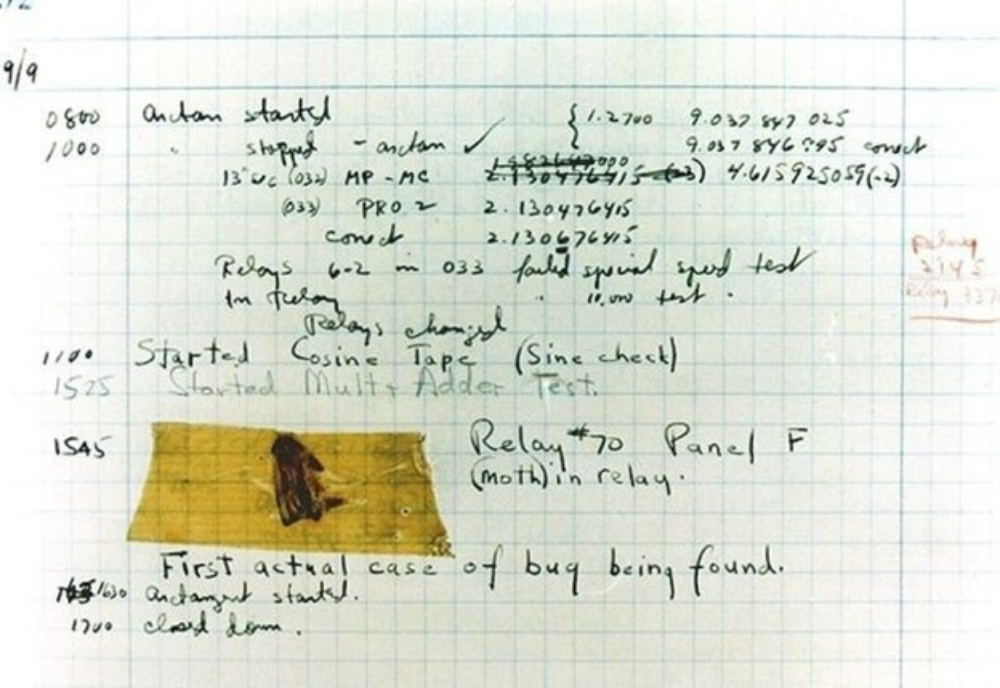 9/9
0800 antan started { 1.2700 9.037 847 025
1000 " stopped - antan ✓ 9.037 846 795 conect
13"uc (032) MP - MC 2.130476415 (-3) 4.615925059(-2)
(033) PRO 2 2.130476415
conect 2.130676415
Relays 6-2 in 033 failed special speed test
In Relay " 10,000 test .
Relays changed
1100 Started Cosine Tape (Sine check)
1525 Started Mult+ Adder Test.
1545 Relay #70 Panel F
(moth) in relay.
First actual case of bug being found.
1630 antangent started.
1700 closed down.
Relay
Relay 337